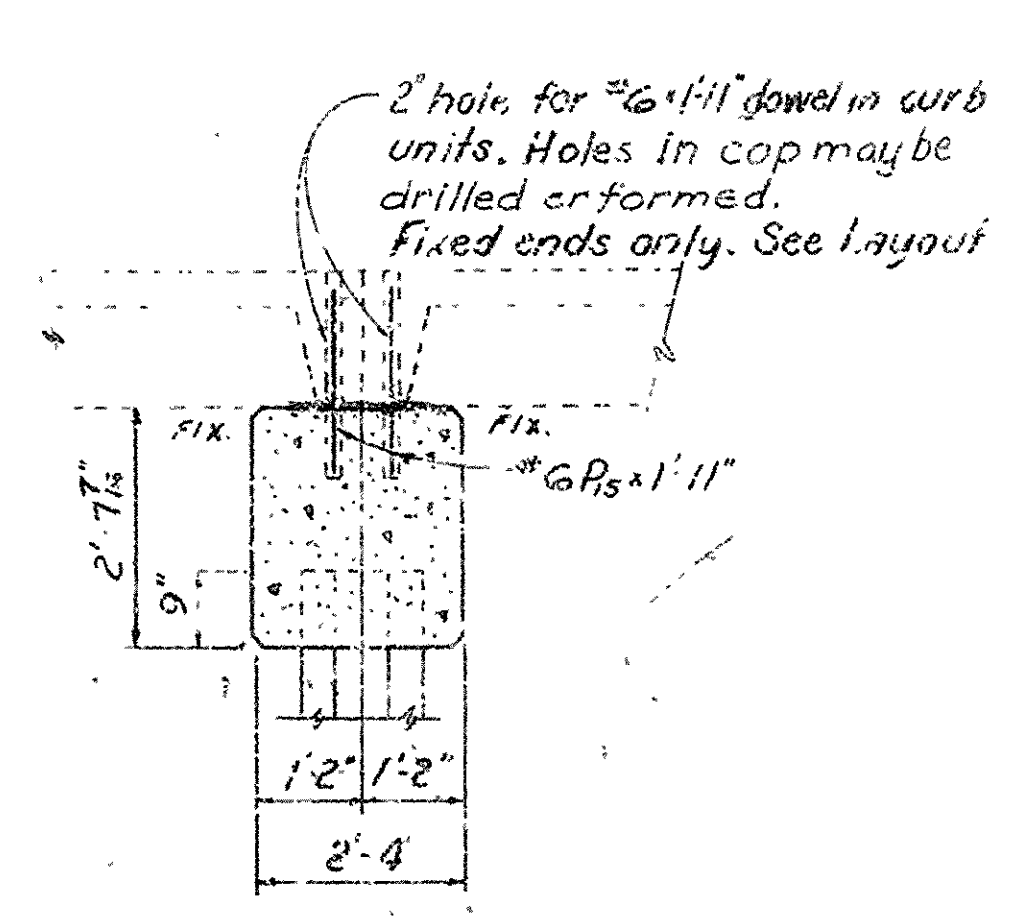 2" hole for #6 x 1'-11" dowel in curb
units. Holes in cap may be
drilled or formed.
Fixed ends only. See Layout
FIX.
FIX.
#6 P15 x 1'-11"
2'-7
9"
1'-2" 1'-2"
2'-4"